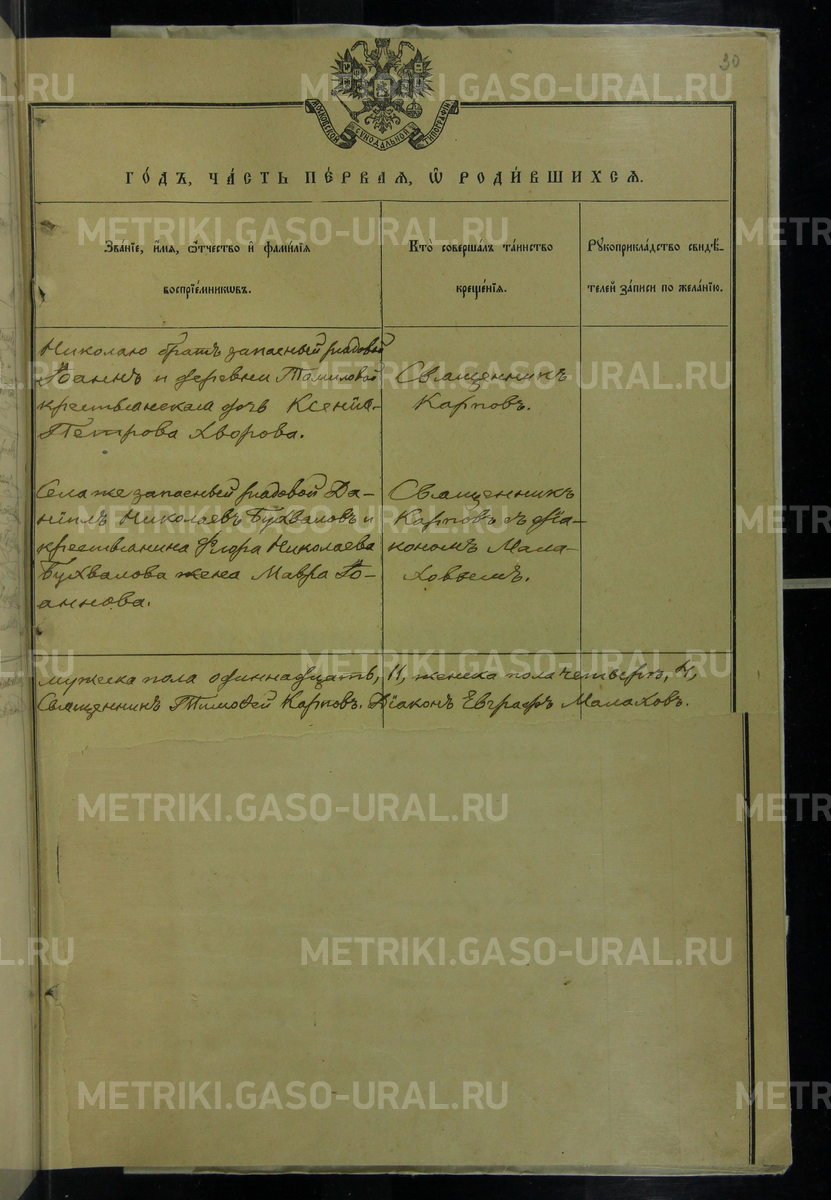 30
МОСКОВСКОЙ СѴНОДАЛЬНОЙ ТИПОГРАФІИ
ГО́ДЪ, ЧА́СТЬ ПЕ́РВАЯ, Ѡ҆ РОДИ́ВШИХСЯ.
Зва́нїе, и҆́мя, ѻ҆́тчество и҆ фамі́лїя
воспрїе́мниковъ.
Кто̀ соверша́лъ та́инство
креще́нїя.
Рꙋкоприкла́дство свидѣ́-
телей за́писи по жела́нїю.
Николаю братъ запасный рядовой
Іоаннъ и деревни Томиловой
крестьянская дочь Ксенія
Петрова Хворова.
Священникъ
Карповъ.
Села же запасный рядовой Да-
ніилъ Николаевъ Бухваловъ и
крестьянина Ѳеодора Николаева
Бухвалова жена Мавра Іо-
аннова.
Священникъ
Карповъ съ діа-
кономъ Мала-
ховымъ.
мужеска пола одиннадцать, 11, женска пола четверо, 4,
Священникъ Тимоѳей Карповъ. Діаконъ Евграфъ Малаховъ.
METRIKI.GASO-URAL.RU